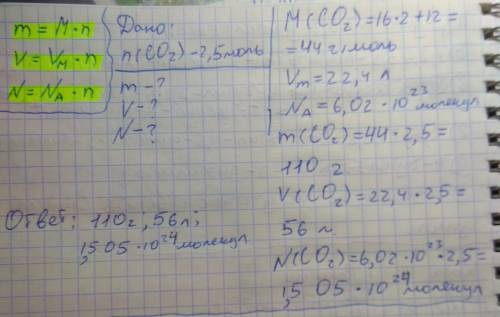 m = M · n
V = Vм · n
N = NA · n
Дано:
n(CO2) - 2,5 моль
m - ?
V - ?
N - ?
M(CO2) = 16 · 2 + 12 =
= 44 г/моль
Vm = 22,4 л
NA = 6,02 · 10²³ молекул
m(CO2) = 44 · 2,5 =
110 г
V(CO2) = 22,4 · 2,5 =
56 л
N(CO2) = 6,02 · 10²³ · 2,5 =
1,505 · 10²⁴ молекул
Ответ: 110г; 56л;
1,505 · 10²⁴ молекул